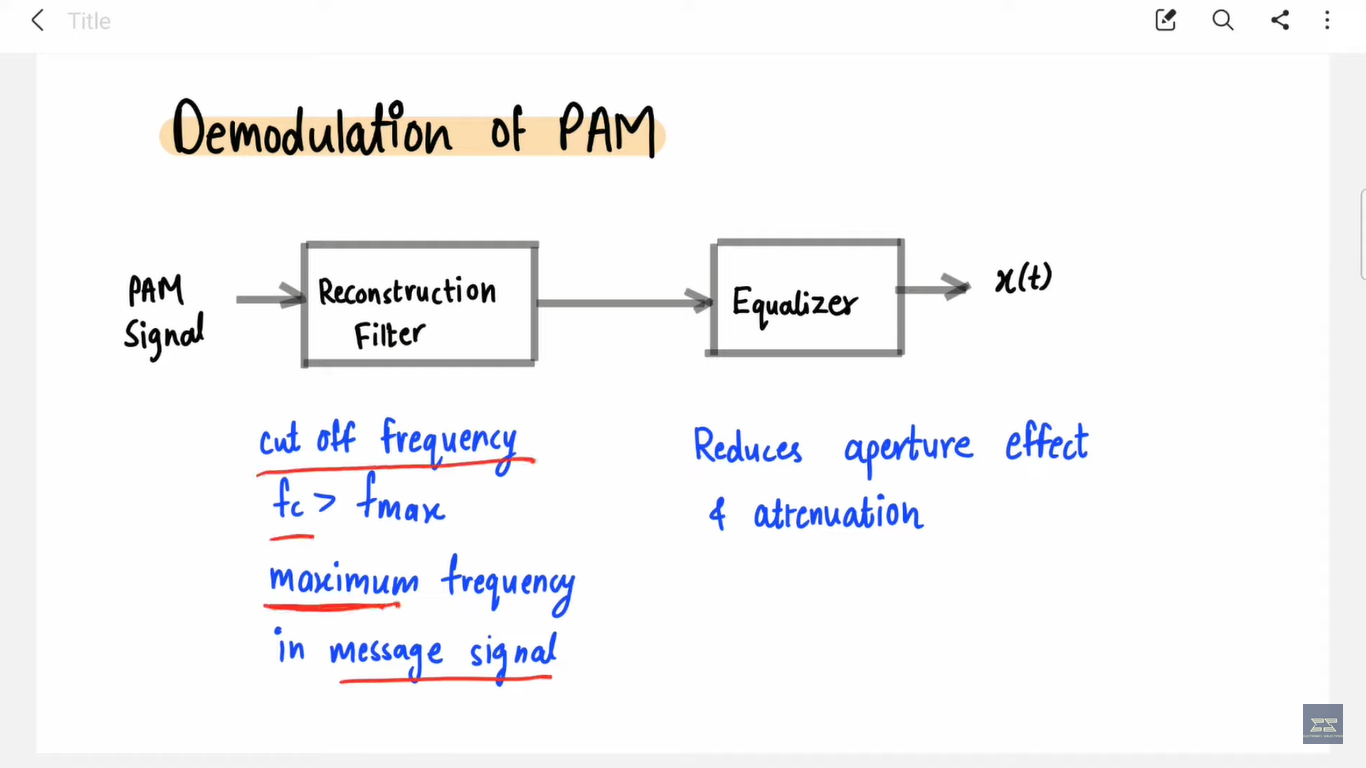 Title
Demodulation of PAM
PAM
Signal
Reconstruction
Filter
Equalizer
x(t)
cut off frequency
fc > fmax
maximum frequency
in message signal
Reduces aperture effect
& attenuation